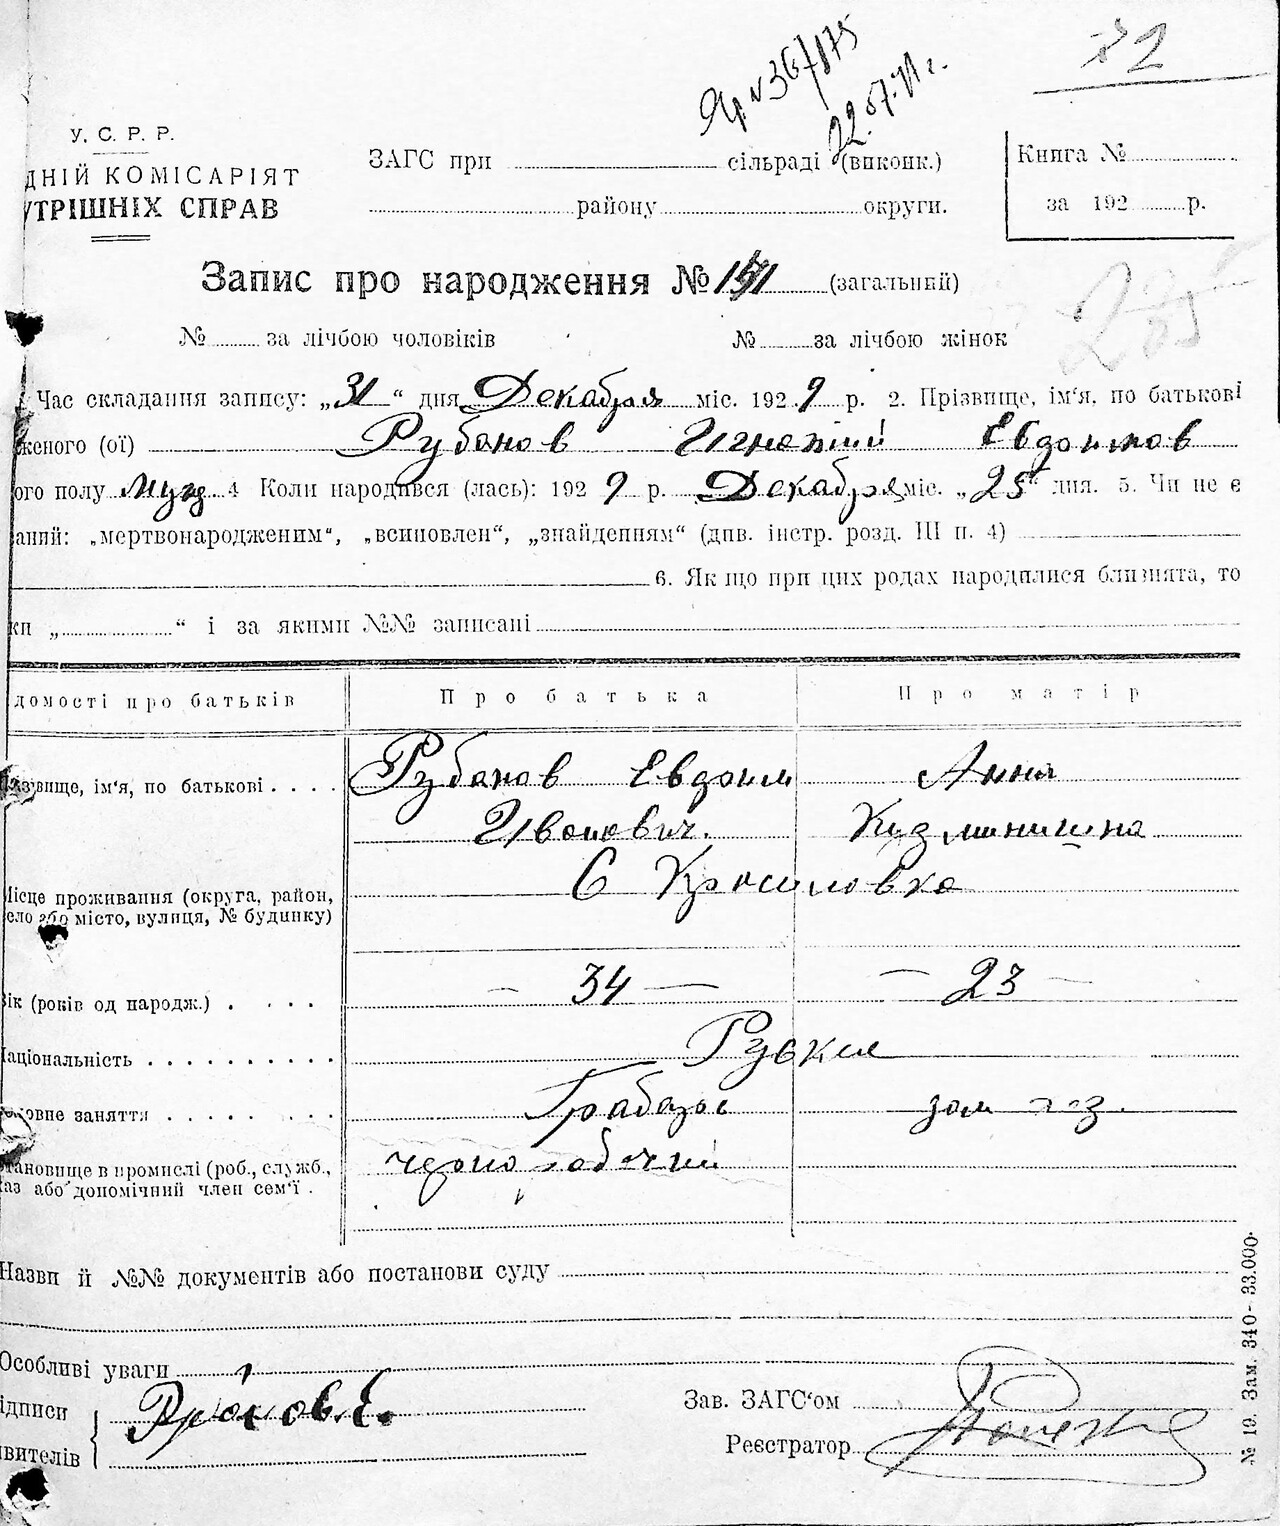 72
№ 367/175
22.07.71 г.
У. С. Р. Р.
ДНІЙ КОМІСАРІЯТ
УТРІШНІХ СПРАВ
ЗАГС при сільраді (виконк.)
району округи.
Книга №
за 192 р.
Запис про народження № (загальний)
№ за лічбою чоловіків № за лічбою жінок
205
Час складання запису: „31“ дня Декабря міс. 1929 р. 2. Прізвище, ім‘я, по батькові
женого (ої) Рубанов Игнатий Евдокимов
ого полу Муж 4 Коли народився (лась): 1929 р. Декабря міс. „25“ дня. 5. Чи не є
аний: „мертвонародженим“, „всиновлен“, „знайденням“ (див. інстр. розд. III п. 4)
6. Як що при цих родах народилися близнята, то
ки „ “ і за якими №№ записані
домості про батьків Про батька Про матір
звище, ім‘я, по батькові . . . . Рубанов Евдоким Анна
Иванович. Кузминишна
Місце проживання (округа, район, С Красиловка
село або місто, вулиця, № будинку)
Вік (років од народж.) . . . . — 34 — — 23 —
Національність . . . . . . . . . . Руская
овне заняття . . . . . . . . Грабарь дом хоз.
тановище в промислі (роб., служб., чернорабочий
аз або допомічний член сем‘ї .
Назви й №№ документів або постанови суду
Особливі уваги
ідписи Рубанов. Е.
явителів
Зав. ЗАГС‘ом
Реєстратор
№ 19. Зам. 340 - 33.000.